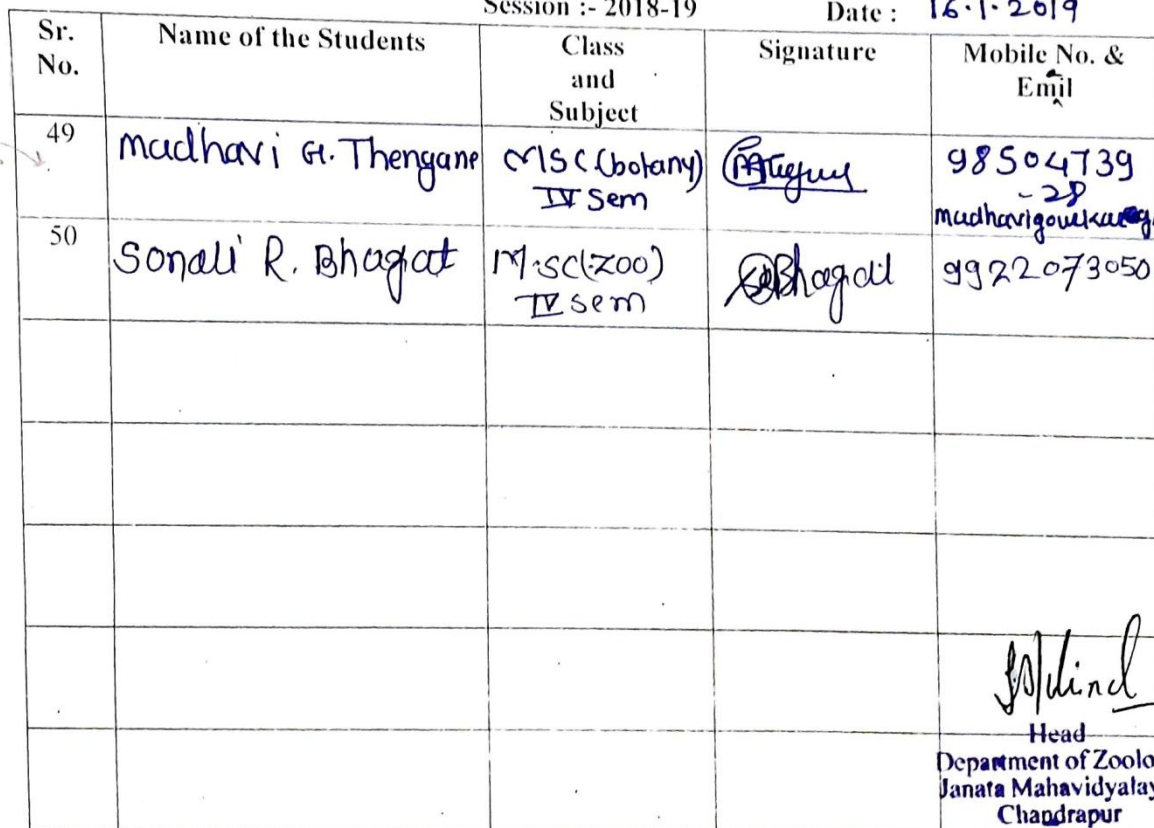 Session :- 2018-19 Date : 16.1.2019
Sr. No. Name of the Students Class and Subject Signature Mobile No. & Email
49 Madhavi G. Thengane MSC (botany) IV Sem 98504739-28
50 Sonali R. Bhagat M.SC(ZOO) IV sem Bhagat 9922073050
Head
Department of Zoolo
Janata Mahavidyalay
Chandrapur